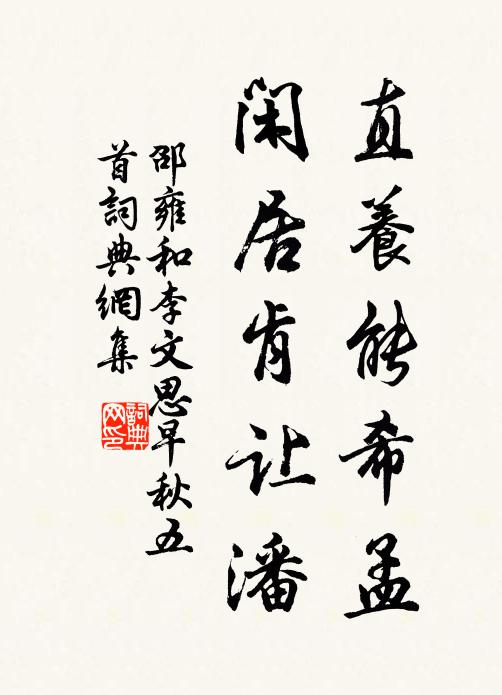 直養能希孟
闲居肯让潘
邵雍和李文思早秋五
首詞典網集
詞典网印